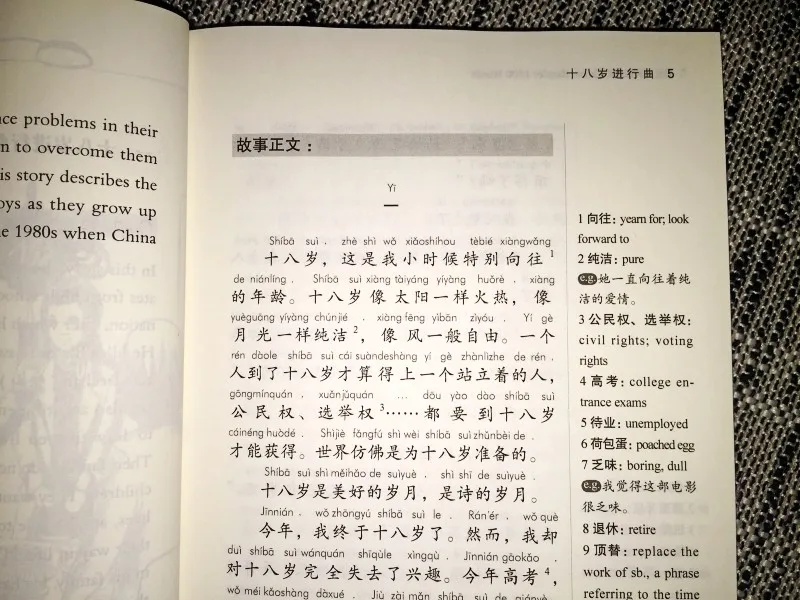 ce problems in their
n to overcome them
is story describes the
oys as they grow up
e 1980s when China
十八岁进行曲 5
故事正文：
Yī
一
Shíbā suì , zhè shì wǒ xiǎoshíhou tèbié xiàngwǎng
十八岁，这是我小时候特别向往1
de niánlíng . Shíbā suì xiàng tàiyáng yíyàng huǒrè , xiàng
的年龄。十八岁像太阳一样火热，像
yuèguāng yíyàng chúnjié , xiàng fēng yìbān zìyóu . Yí gè
月光一样纯洁2，像风一般自由。一个
rén dàole shíbā suì cái suàndeshàng yí gè zhànlìzhe de rén ,
人到了十八岁才算得上一个站立着的人，
gōngmínquán , xuǎnjǔquán ... dōu yào dào shíbā suì
公民权、选举权3……都要到十八岁
cáinéng huòdé . Shìjiè fǎngfú shì wèi shíbā suì zhǔnbèi de .
才能获得。世界仿佛是为十八岁准备的。
Shíbā suì shì měihǎo de suìyuè , shì shī de suìyuè .
十八岁是美好的岁月，是诗的岁月。
Jīnnián , wǒ zhōngyú shíbā suì le . Rán'ér , wǒ què
今年，我终于十八岁了。然而，我却
duì shíbā suì wánquán shīqùle xìngqù . Jīnnián gāokǎo ,
对十八岁完全失去了兴趣。今年高考4，
wǒ méi kǎoshàng dàxué . Jiù zài mǎn shíbā suì de
1 向往：yearn for; look
forward to
2 纯洁：pure
e.g 她一直向往着纯
洁的爱情。
3 公民权、选举权：
civil rights; voting
rights
4 高考：college en-
trance exams
5 待业：unemployed
6 荷包蛋：poached egg
7 乏味：boring, dull
e.g 我觉得这部电影
很乏味。
8 退休：retire
9 顶替：replace the
work of sb., a phrase
referring to the time